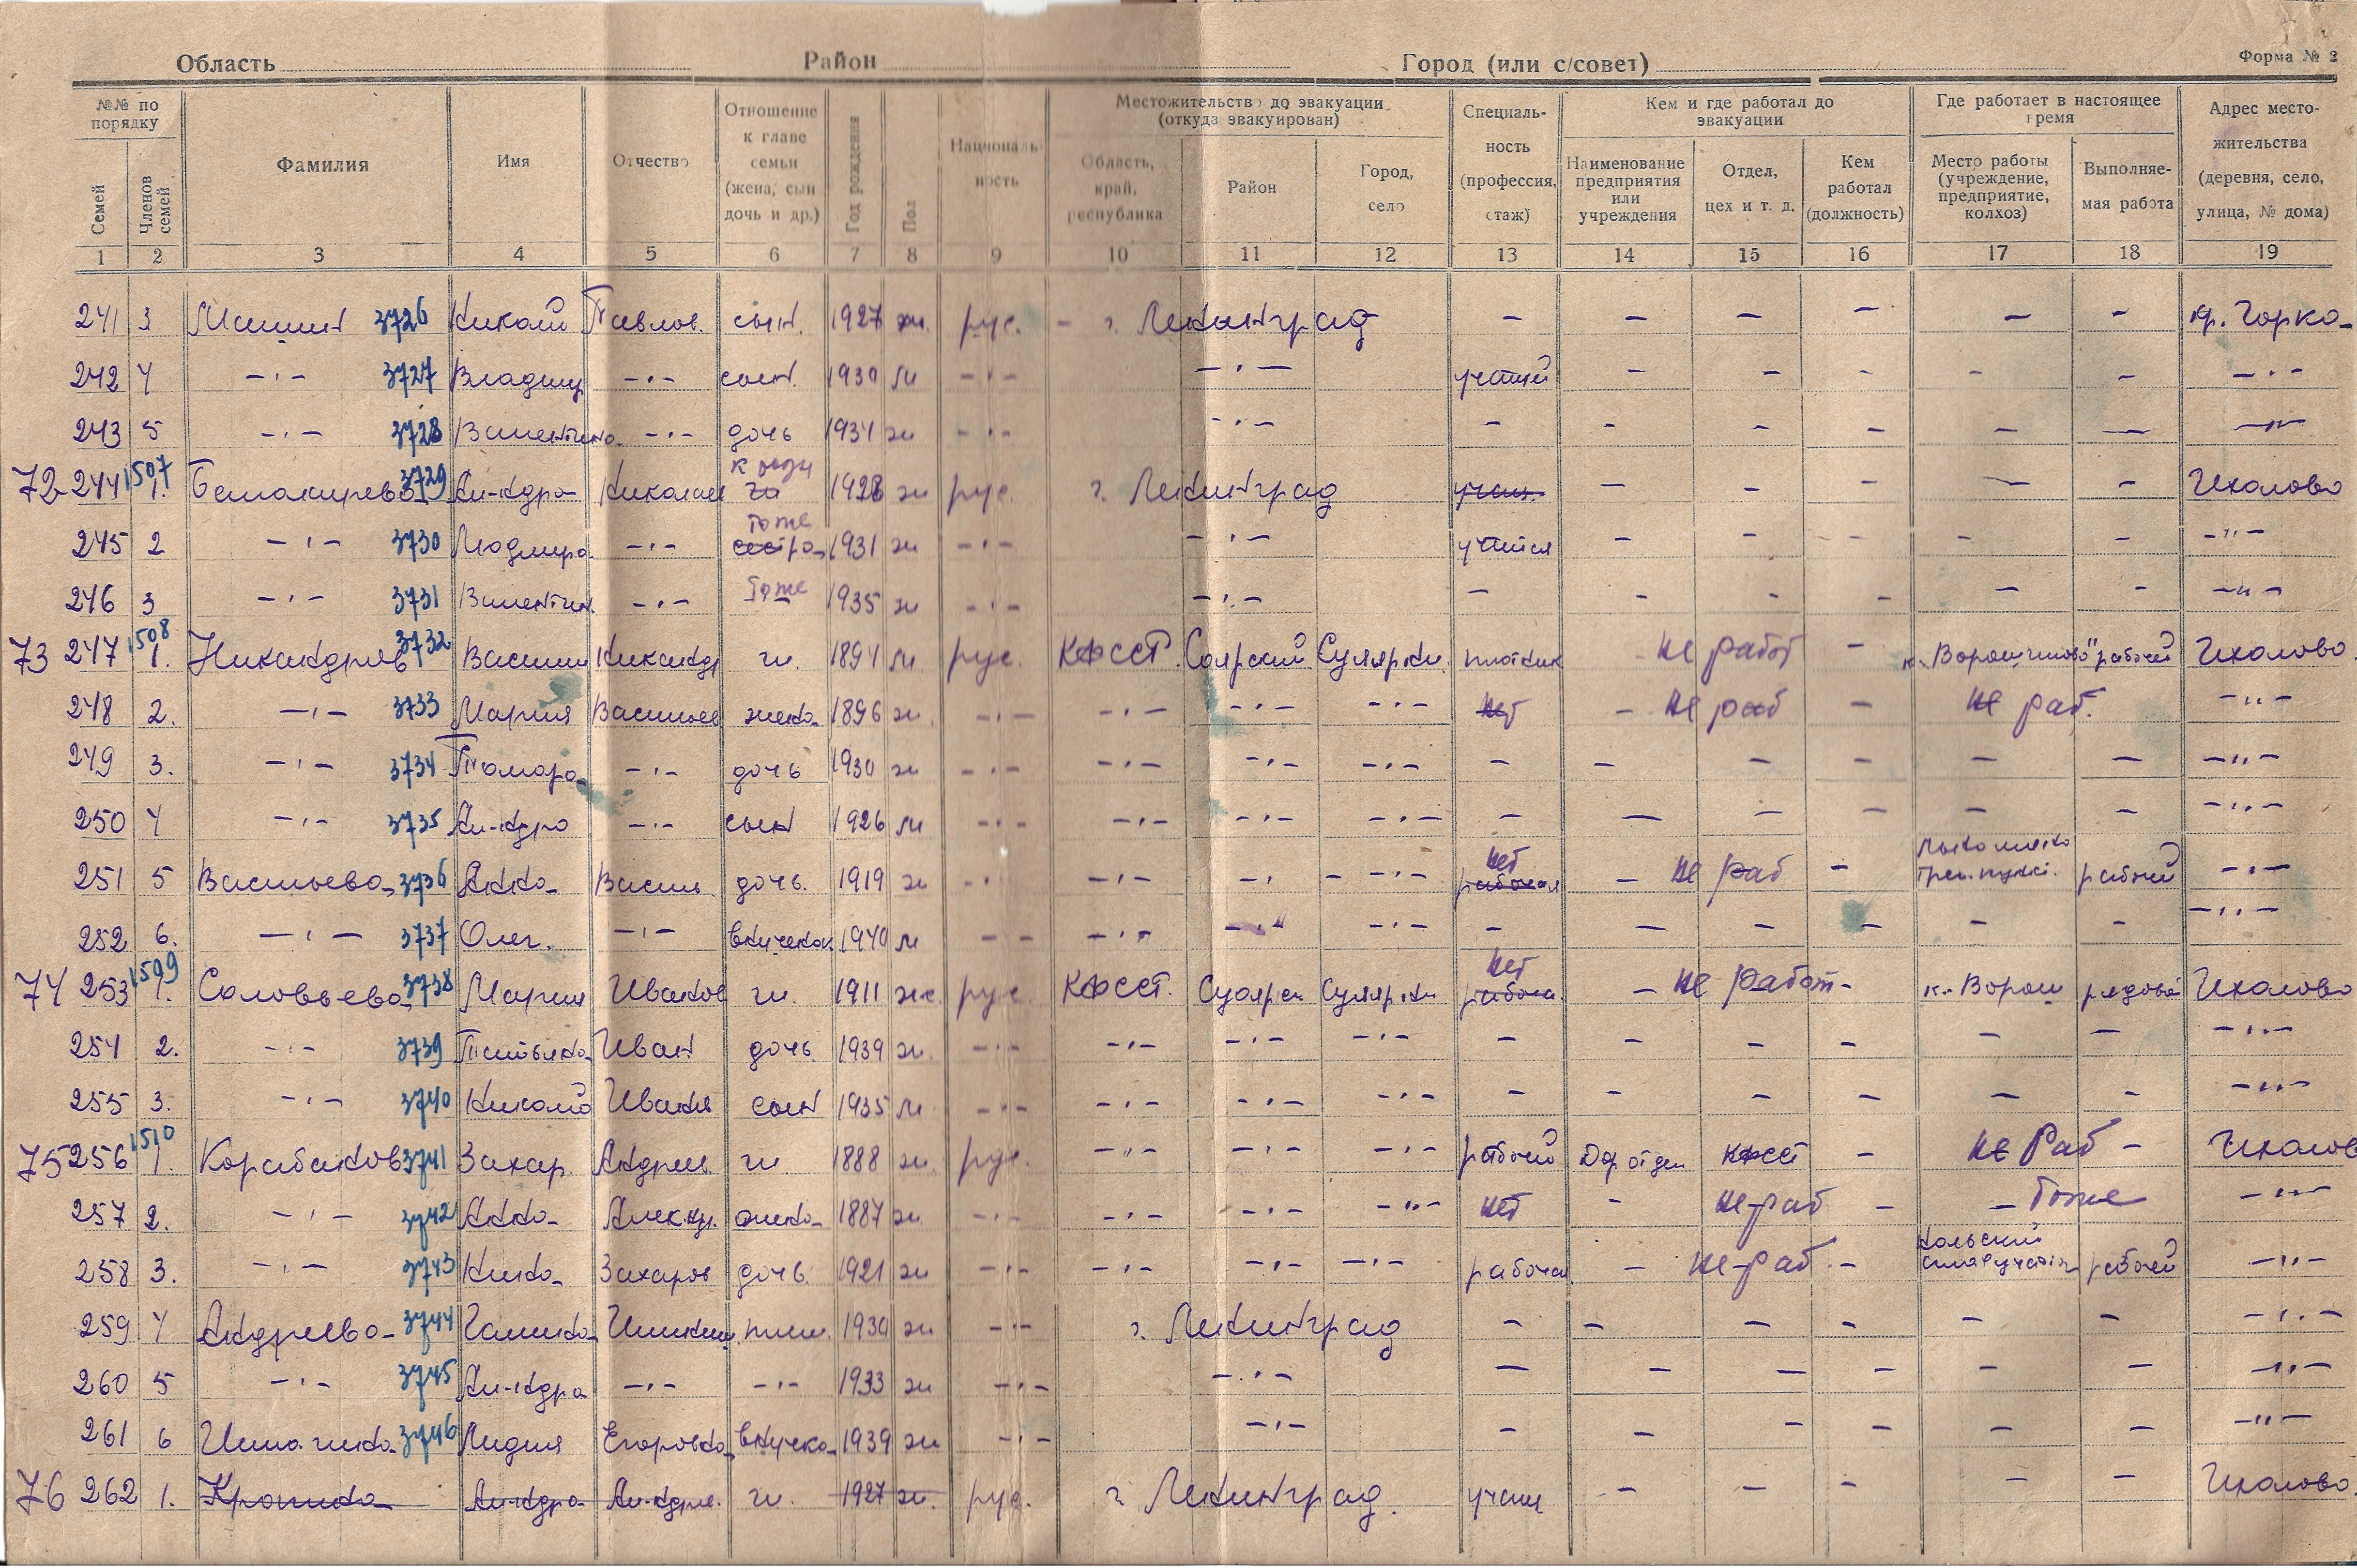 Область Район Город (или с/совет) Форма № 2
№№ по порядку Семей Членов семей Фамилия Имя Отчество Отношение к главе семьи (жена, сын дочь и др.) Год рождения Пол Националь- ность Местожительство до эвакуации (откуда эвакуирован) Область, край, республика Район Город, село Специаль- ность (профессия, стаж) Кем и где работал до эвакуации Наименование предприятия или учреждения Отдел, цех и т. д. Кем работал (должность) Где работает в настоящее время Место работы (учреждение, предприятие, колхоз) Выполняе- мая работа Адрес место- жительства (деревня, село, улица, № дома)
1 2 3 4 5 6 7 8 9 10 11 12 13 14 15 16 17 18 19
241 3 3726 Николай Павлов. сын. 1927 рус. - г. Ленинград - - - - - -
242 4 -·- 3727 Владимир -·- сын. 1930 м -·- -·- - - - - - -·-
243 5 -·- 3728 Валентина -·- дочь 1934 ж -·- -·- - - - - - - -·-
72 244 1507 1. 3729 Ал-ндра Николаев 1928 ж рус. г. Ленинград - - - - - Чкалово
245 2 -·- 3730 Людмила -·- тоже сестра 1931 ж -·- -·- учится - - - - - -··-
246 3 -·- 3731 Валентин. -·- тоже 1935 ж -·- -·- - - - - - - -··-
73 247 1508 1. Никандров 3732 Василий Никандр гл. 1894 м рус. КФССР Соярский Суоярви плотник не работ - к. Ворошилово" рабочий Чкалово.
248 2. -·- 3733 Мария Васильев жена 1896 ж. -·- -·- -·- -·- нет - не раб - не раб. -··-
249 3. -·- 3734 Тамара -·- дочь 1930 ж -·- -·- -·- -·- - - - - - - -··-
250 4 -·- 3735 Ал-ндр -·- сын 1926 м -·- -·- -·- -·- - - - - - - -··-
251 5 Васильева 3736 Анна Васил дочь 1919 ж -·- -·- -· - -·- нет рабочая - не раб - рабочий -··-
252 6. -·- 3737 Олег. -·- 1940 м - - -·- -·- -·- - - - - - - -··-
74 253 1509 1. Соловьева 3738 Мария Иванов гл. 1911 ж. рус КФССР. Суоярск Суоярви нет рабоча. - не работ - к-з Ворош рядовой Чкалово
254 2. -·- 3739 Татьяна Иван дочь. 1939 ж. -·- -·- -·- -·- - - - - - - -··-
255 3. -·- 3740 Николай Иванов сын 1935 м -·- -·- -·- -·- - - - - - - -··-
75 256 1510 1. Корабанов 3741 Захар. Андреев гл. 1888 рус. -··- -·- -·- рабочий Дор отдел КФССР - не Раб - Чкалов
257 2. -·- 3742 Анна Алекс. жена 1887 ж. -·- -·- -·- -··- нет - не-раб - - тоже -··-
258 3. -·- 3743 Нина Захаров дочь. 1921 ж -·- -·- -·- -·- рабочая - не-раб. - рабочий -··-
259 4 Андреева 3744 Галина плем. 1930 ж -·- г. Ленинград - - - - - - -··-
260 5 -·- 3745 Ал-ндра -·- -·- 1933 ж -·- -·- - - - - - - -··-
261 6 3746 Лидия Егоровна внучка 1939 ж -·- -·- - - - - - - -··-
76 262 1. Ал-ндра Ал-ндров. гл. 1927 ж. рус. г. Ленинград. учащ - - - - - Чкалово.